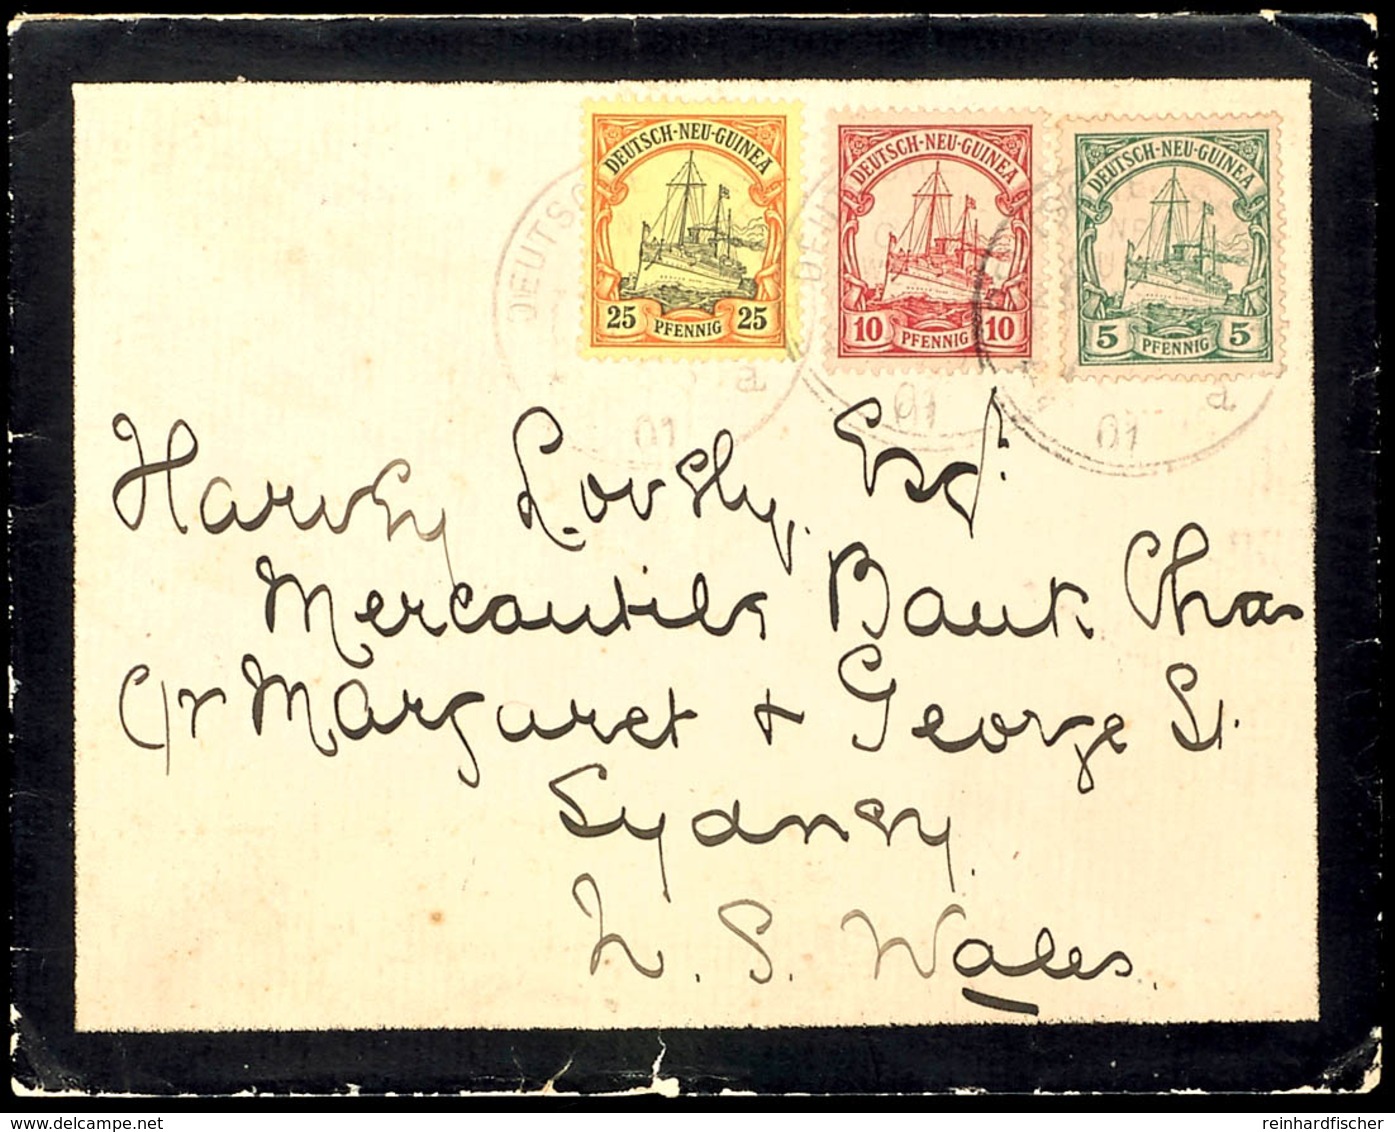 DEUTSCH-NEU-GUINEA
25 PFENNIG 25
DEUTSCH-NEU-GUINEA
10 PFENNIG 10
DEUTSCH-NEU-GUINEA
5 PFENNIG 5
DEUTSC
a
01
DEU
01
a
01
Harvey Lovely, Esq.
Mercantile Bank Cha
C/r Margaret & George St.
Sydney
N. S. Wales.
www.delcampe.net
reinhardfischer